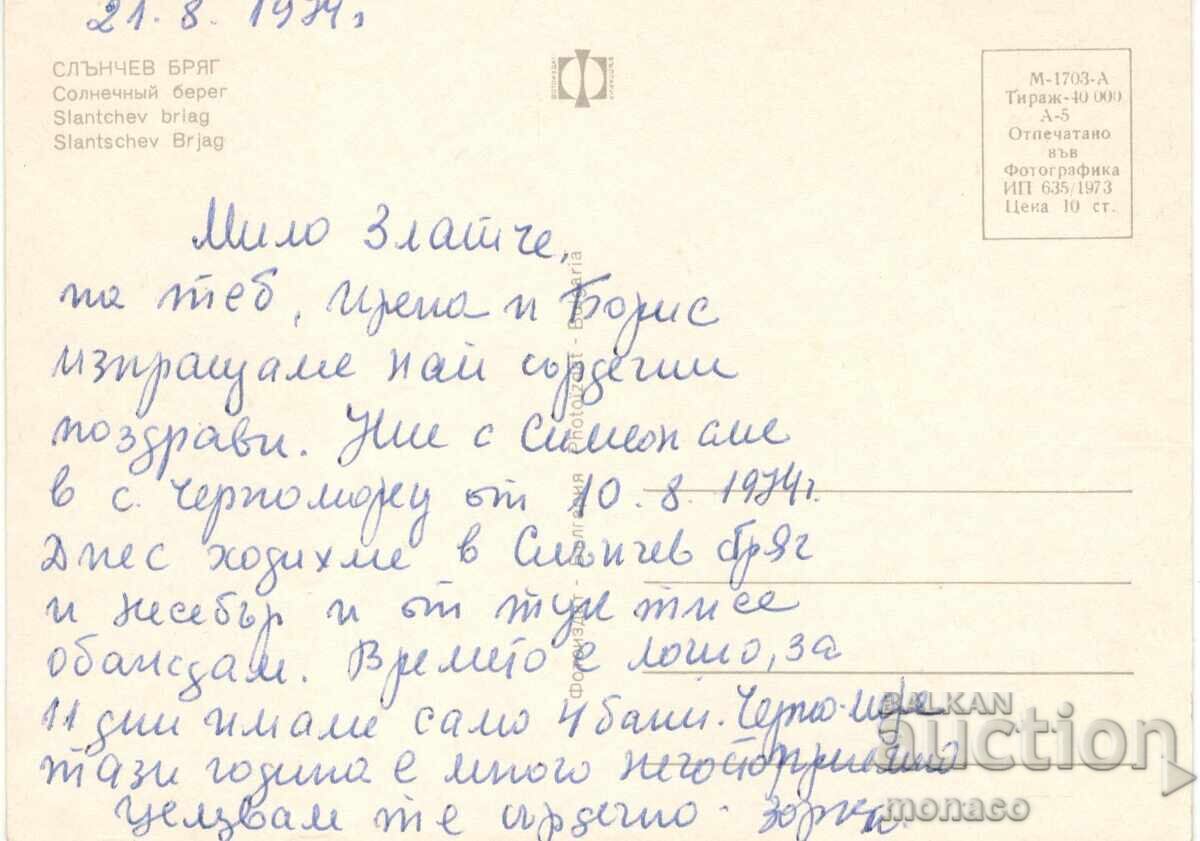 21. 8. 1974г
СЛЪНЧЕВ БРЯГ
Солнечный берег
Slantchev briag
Slantschev Brjag
ФОТОИЗДАТ
М-1703-А
Тираж-40 000
А-5
Отпечатано
във
Фотографика
ИП 635/1973
Цена 10 ст.
Мило Златче,
на теб, Ирена и Борис
изпращаме най сърдечни
поздрави. Ние с Симеон сме
в с. Черноморец от 10. 8. 1974г.
Днес ходихме в Слънчев бряг
и Несебър и от тук ти се
обаждам. Времето е лошо, за
11 дни имаме само 4 бани. Черно море
тази година е много негостоприемно
Целувам те сърдечно -
Фотоиздат - България Photoizdat - Bulgaria
BALKAN
auction
monaco